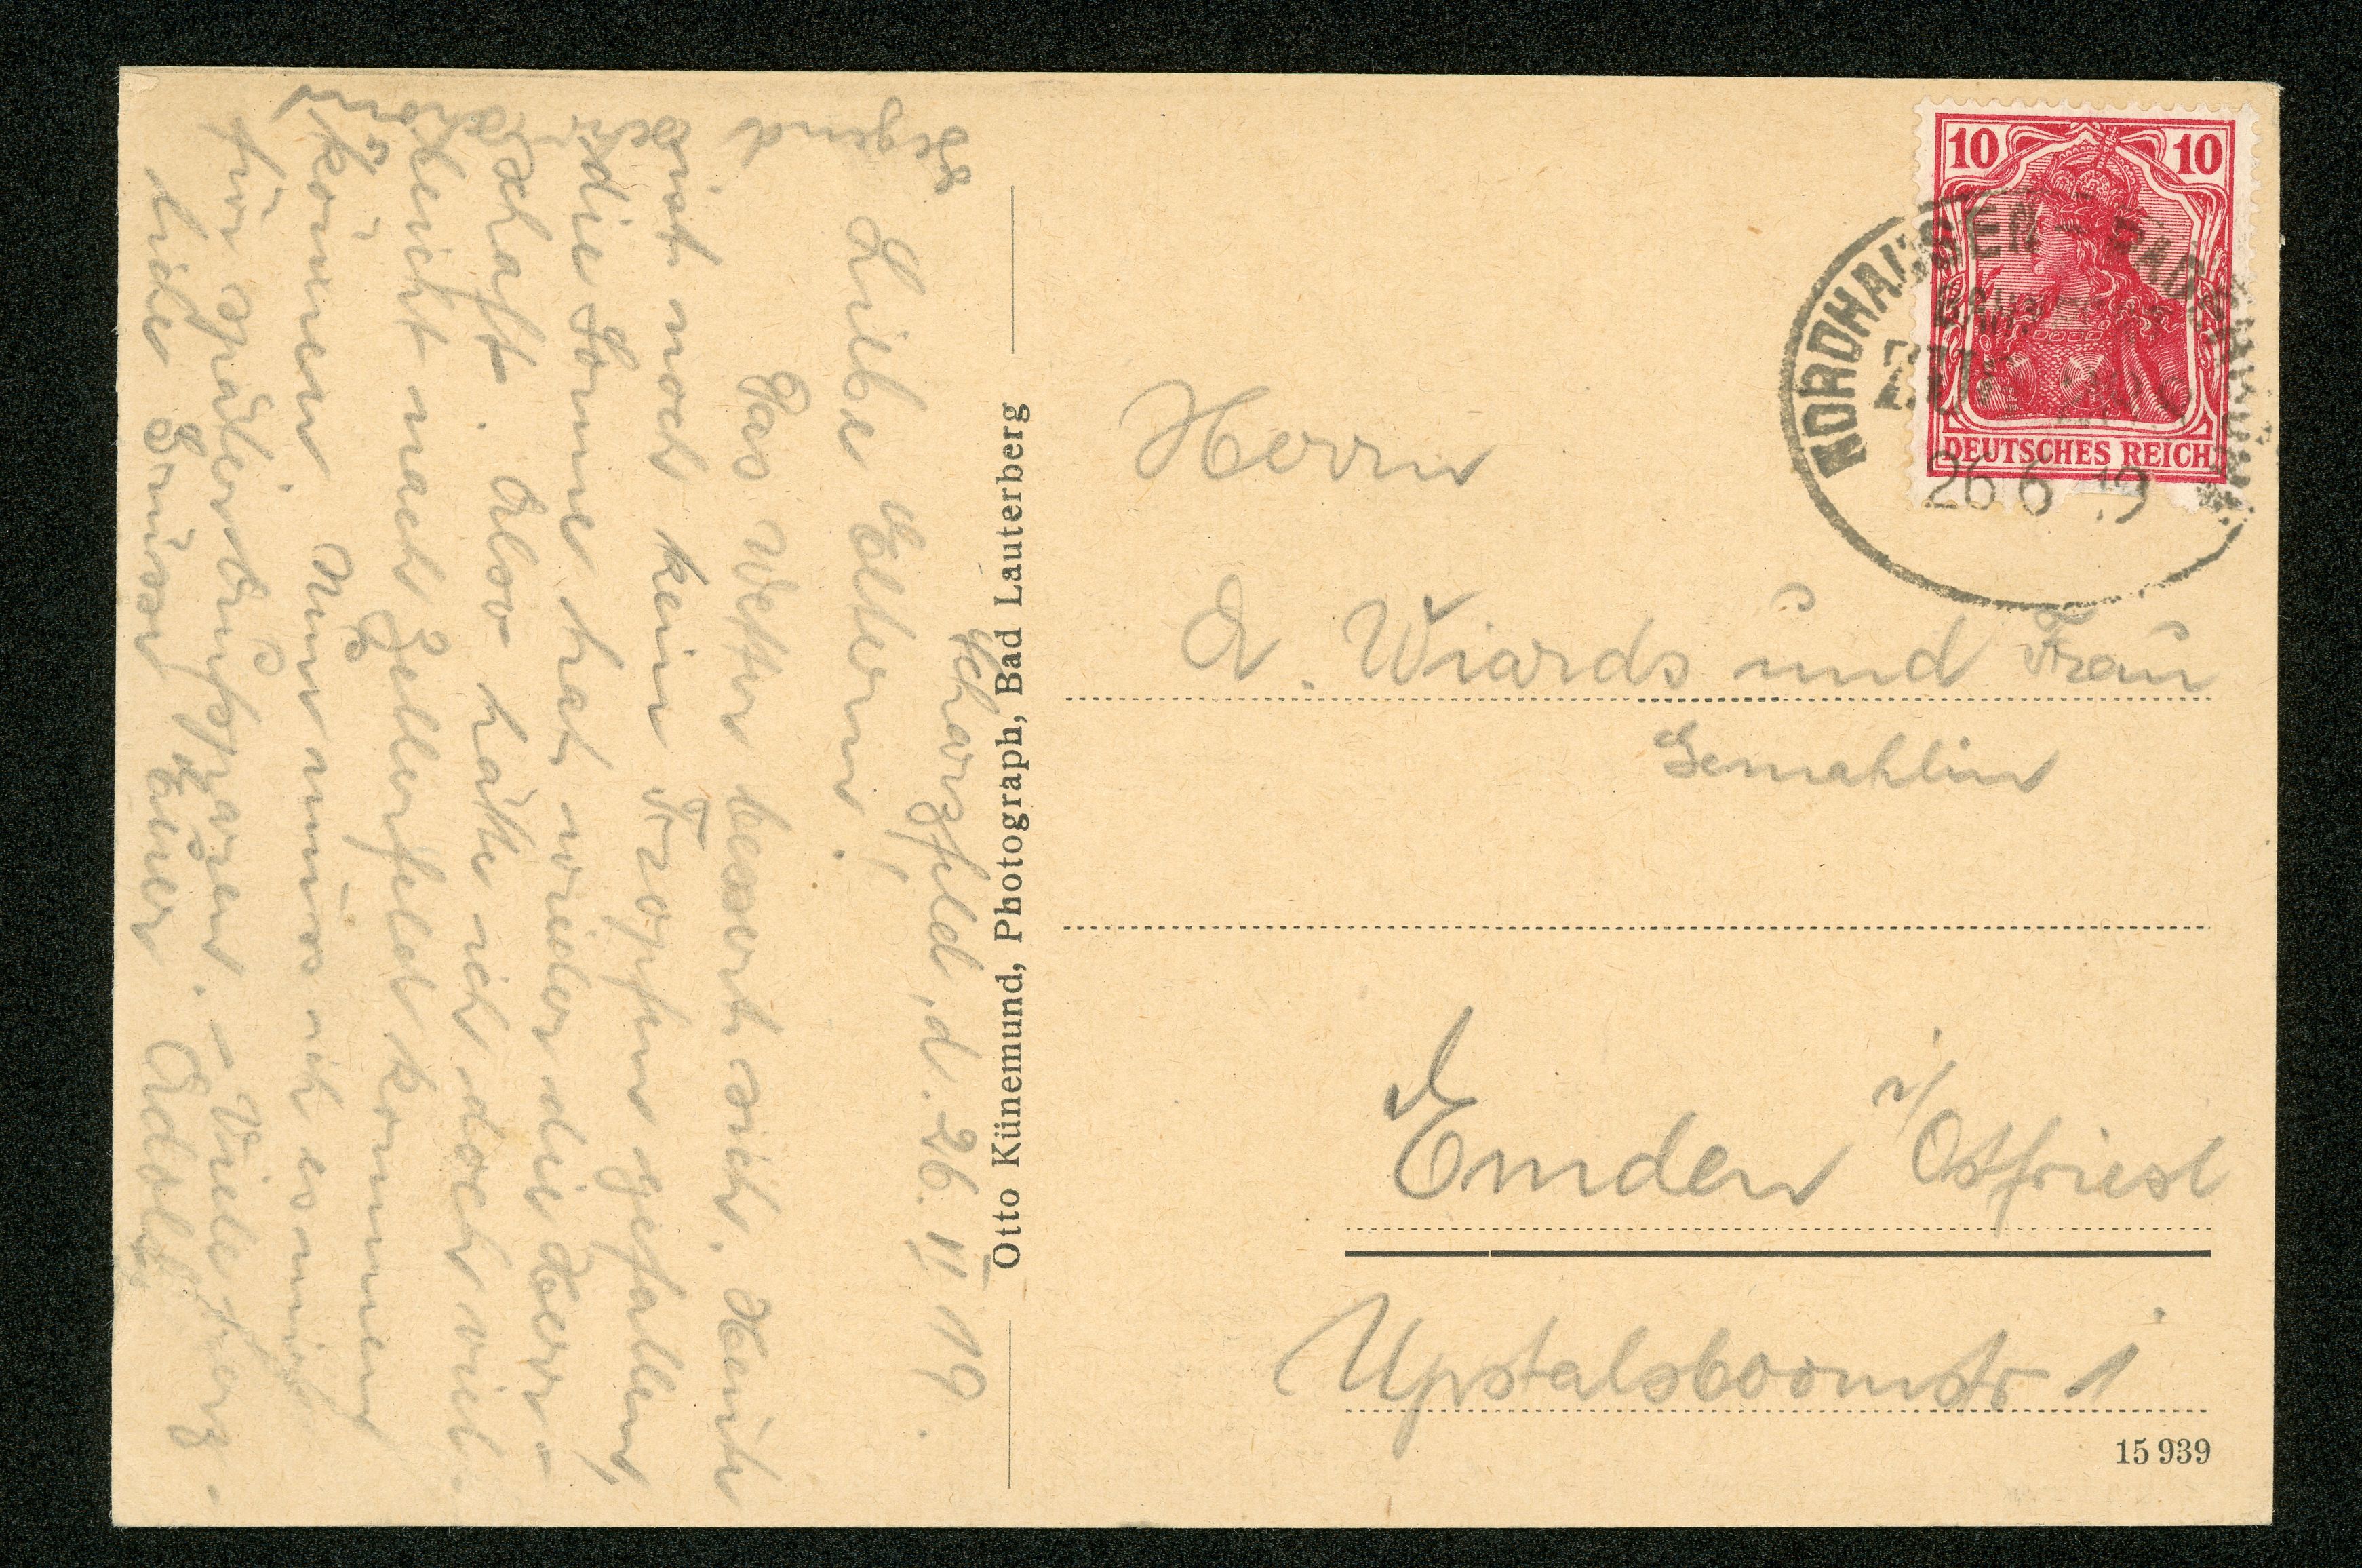 10 10
DEUTSCHES REICH
NORDHAUSEN -
BAHNPOST
ZUG
26 6 19
Herrn
A. Wiards und Frau
Gemahlin
Emden i/Ostfriesl
Upstalsboomstr 1
15 939
Otto Künemund, Photograph, Bad Lauterberg
Scharzfeld, d. 26. VI. 19.
Liebe Eltern!
Das Wetter bessert sich. Heute
ist noch kein Tropfen gefallen,
die Sonne hat wieder die Herr-
schaft. Also hätte ich doch viel-
leicht nach Zellerfeld kommen
können. Nun muss ich es mir
für später aufsparen. – Viele herz-
liche Grüsse Euer Adolf
Gegend